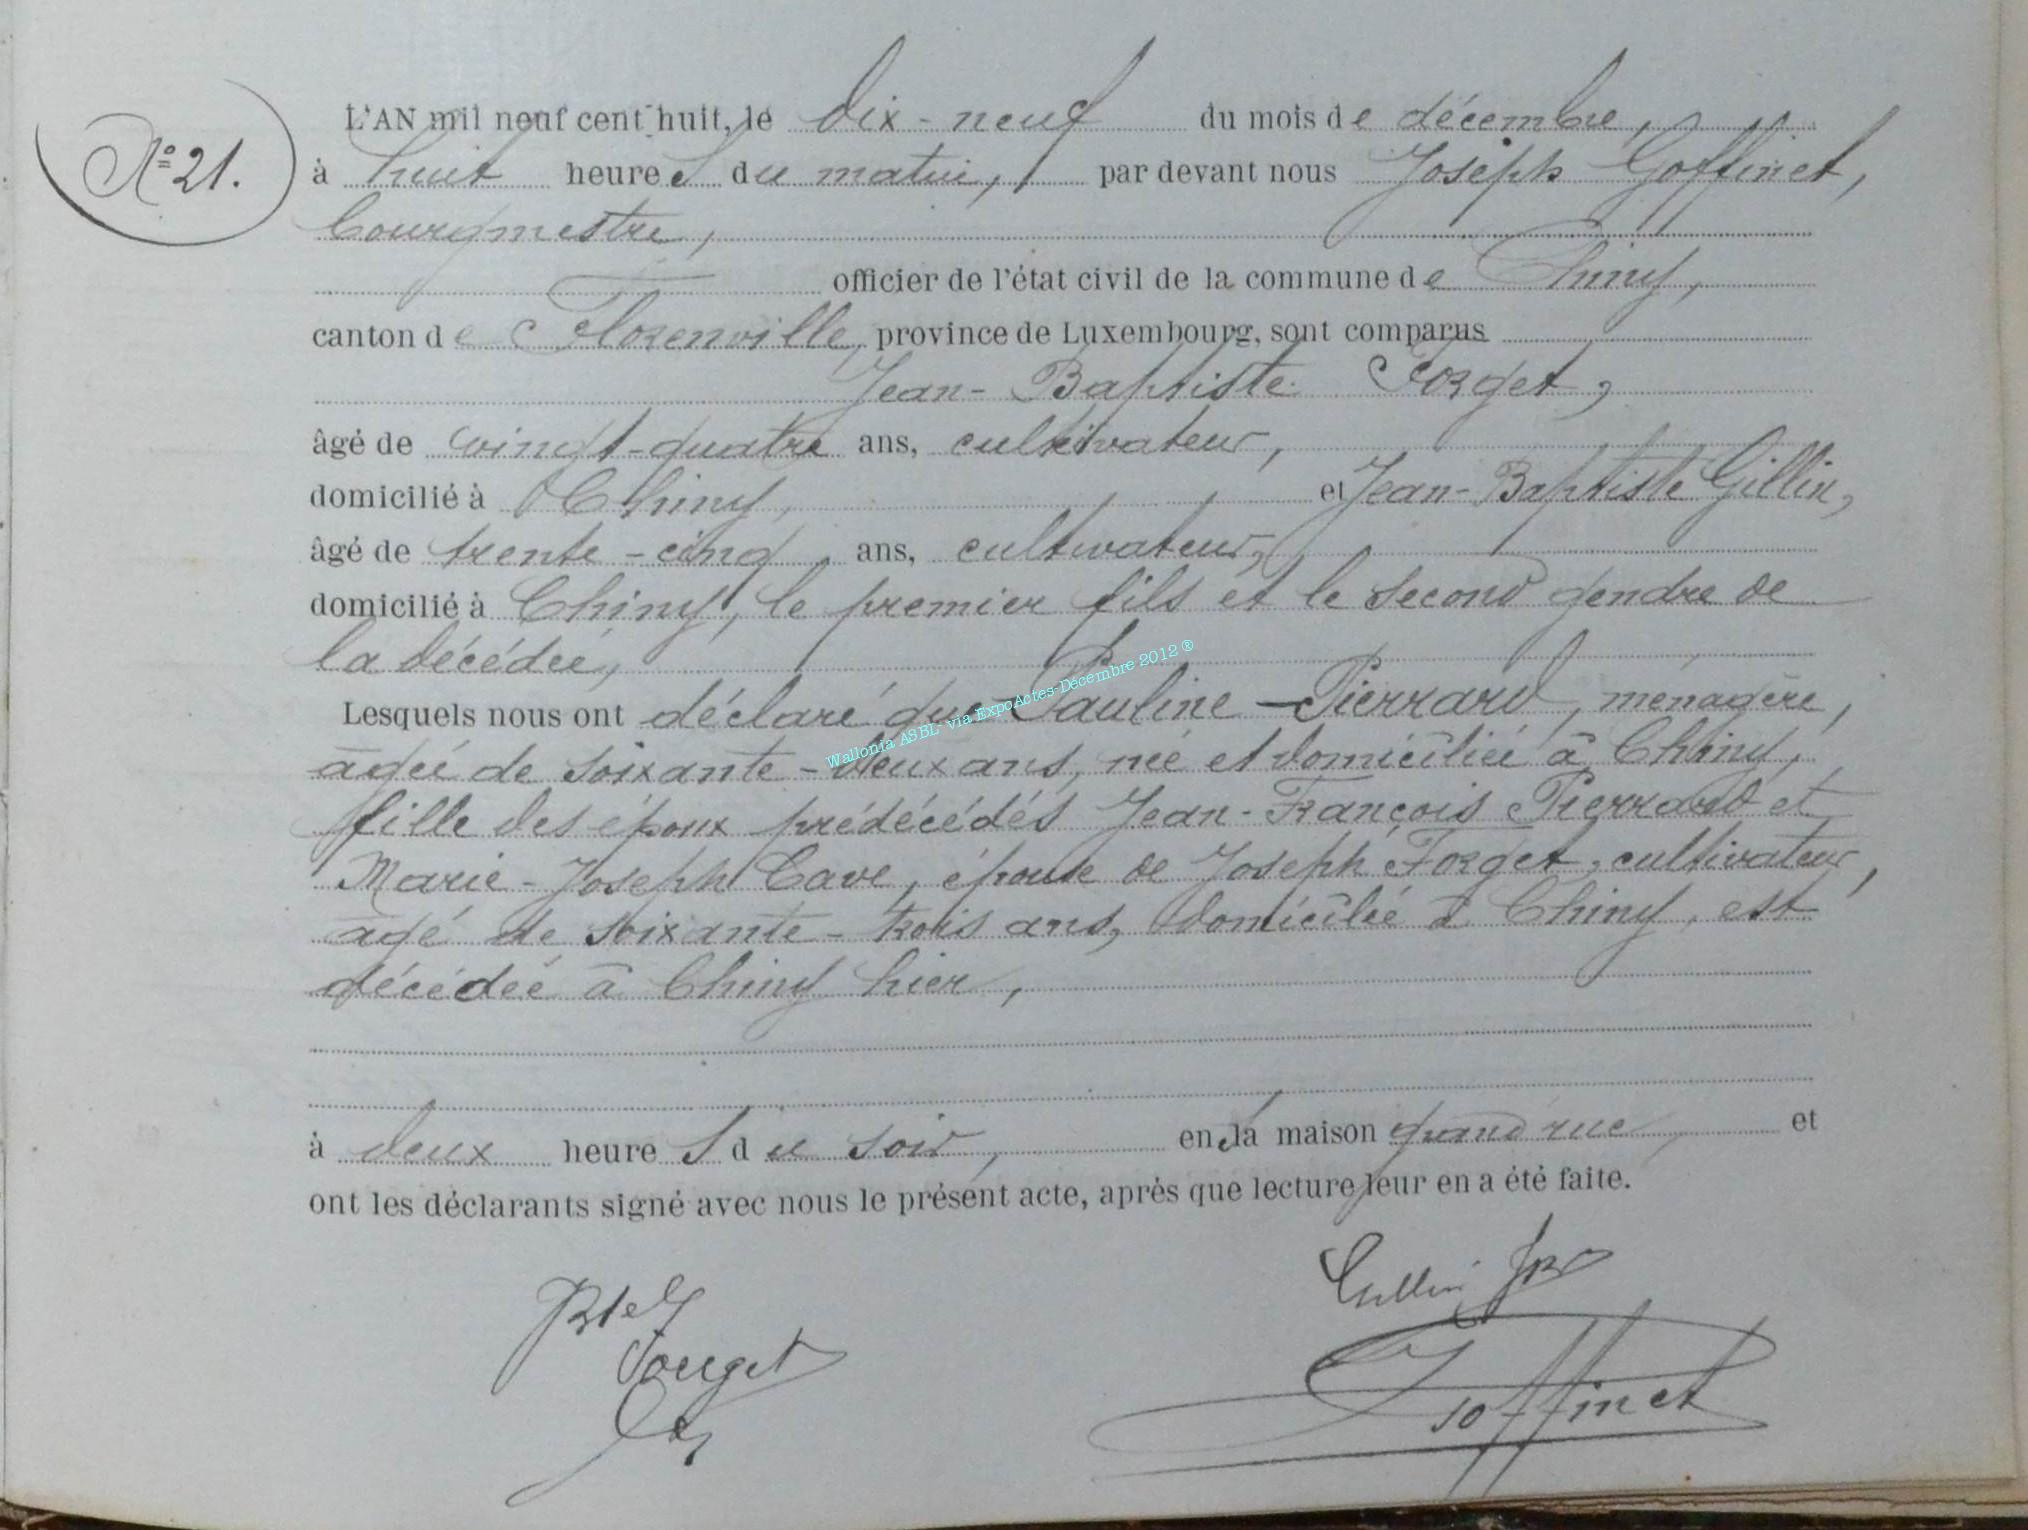 L'AN mil neuf cent huit, le dix-neuf du mois de décembre,
N° 21.
à huit heures du matin, par devant nous Joseph Goffinet,
bourgmestre,
officier de l'état civil de la commune de Chiny,
canton de Florenville, province de Luxembourg, sont comparus
Jean-Baptiste Forget,
âgé de vingt-quatre ans, cultivateur,
domicilié à Chiny, et Jean-Baptiste Gillin,
âgé de trente-cinq ans, cultivateur,
domicilié à Chiny, le premier fils et le second gendre de
la décédée,
Lesquels nous ont déclaré que Pauline Pierrard, ménagère,
âgée de soixante-deux ans, née et domiciliée à Chiny,
fille des époux prédécédés Jean-François Pierrard et
Marie-Joseph Cave, épouse de Joseph Forget, cultivateur,
âgé de soixante-trois ans, domicilié à Chiny, est
décédée à Chiny hier,
à deux heures du soir, en la maison grand'rue, et
ont les déclarants signé avec nous le présent acte, après que lecture leur en a été faite.
Gillin JB
Forget
Goffinet
Wallonia ASBL- via ExpoActes-Décembre 2012 ®